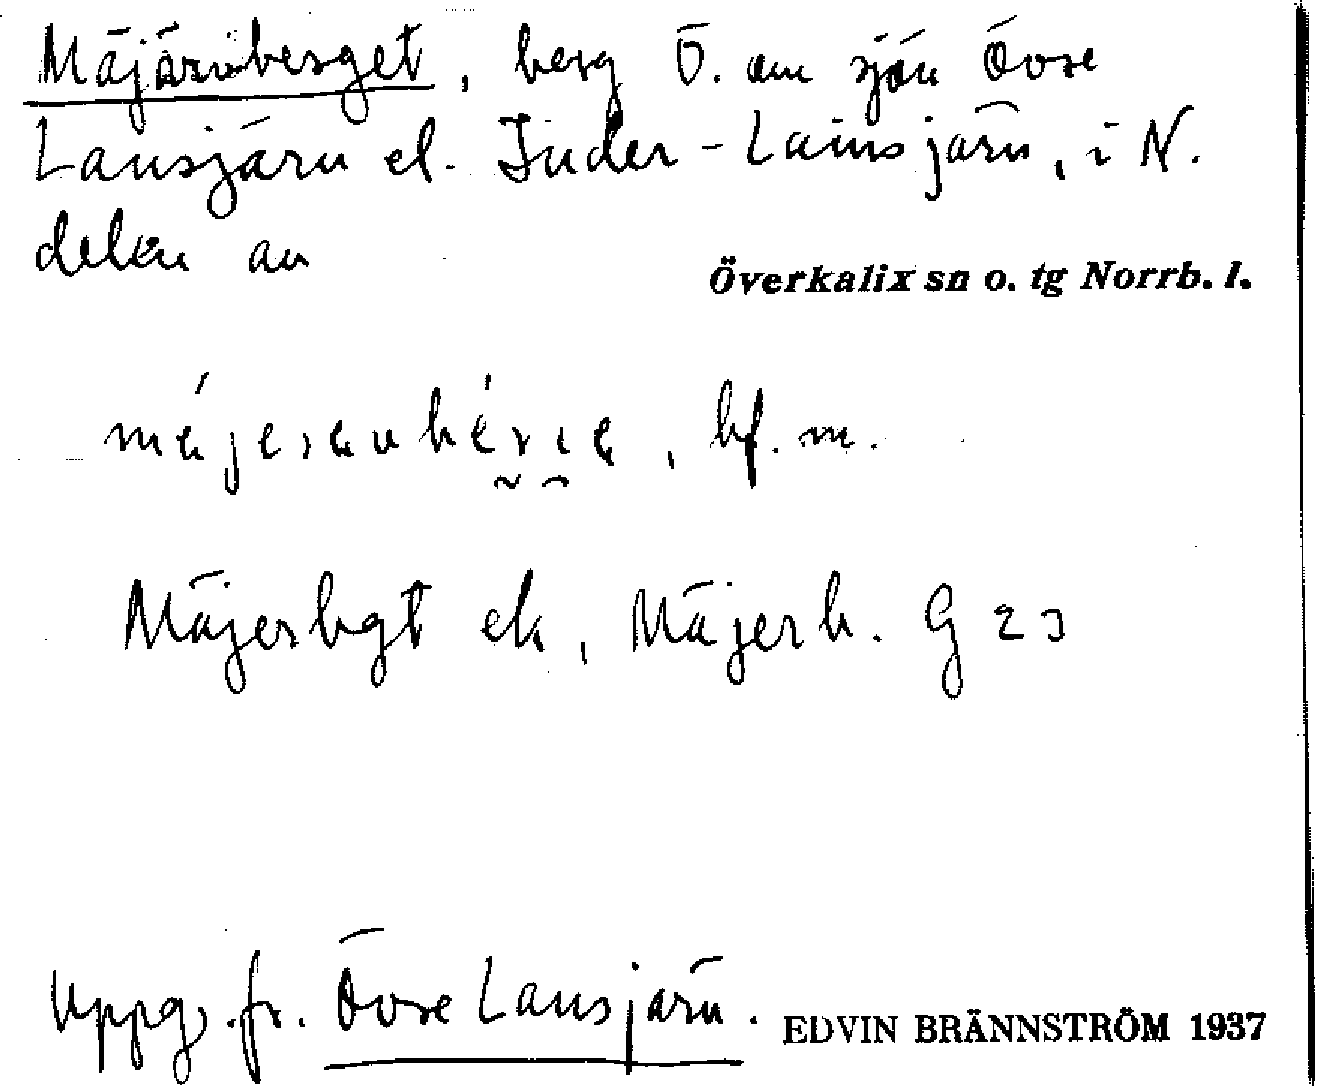 Mäjärvberget, berg Ö. om sjön Övre
Lansjärv el. Inder-Lainsjärv, i N.
delen av
Överkalix sn o. tg Norrb. l.
bf. m.
Mäjerbgt ek, Mäjerb. G 23
Uppg. fr. Övre Lansjärv.
EDVIN BRÄNNSTRÖM 1937